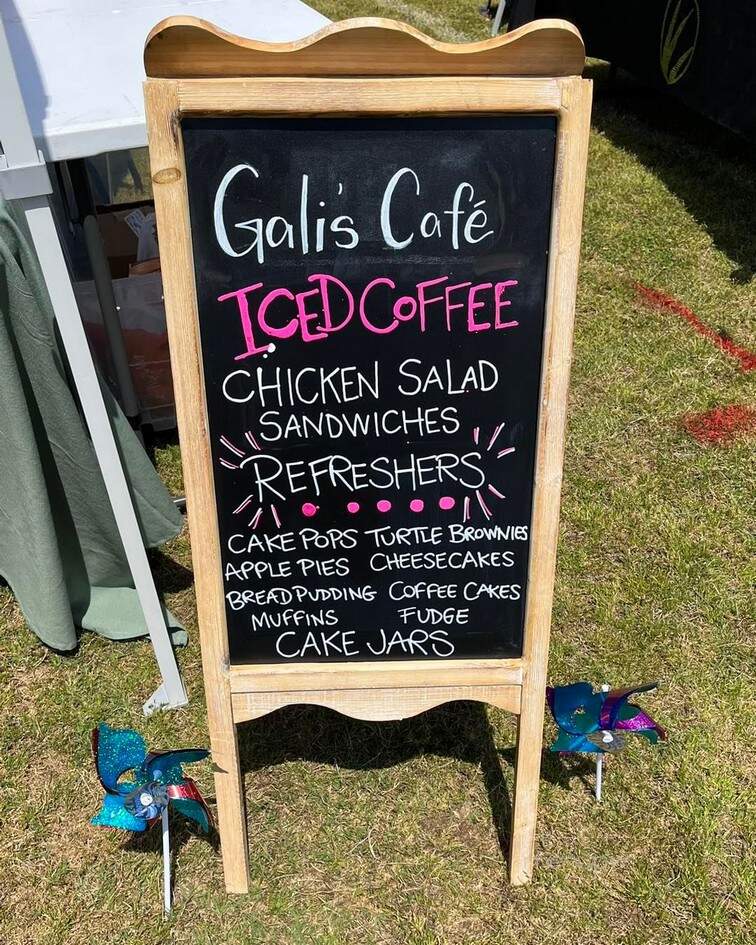 Gali's Café
ICED COFFEE
CHICKEN SALAD
SANDWICHES
REFRESHERS
CAKE POPS TURTLE BROWNIES
APPLE PIES CHEESECAKES
BREAD PUDDING COFFEE CAKES
MUFFINS FUDGE
CAKE JARS